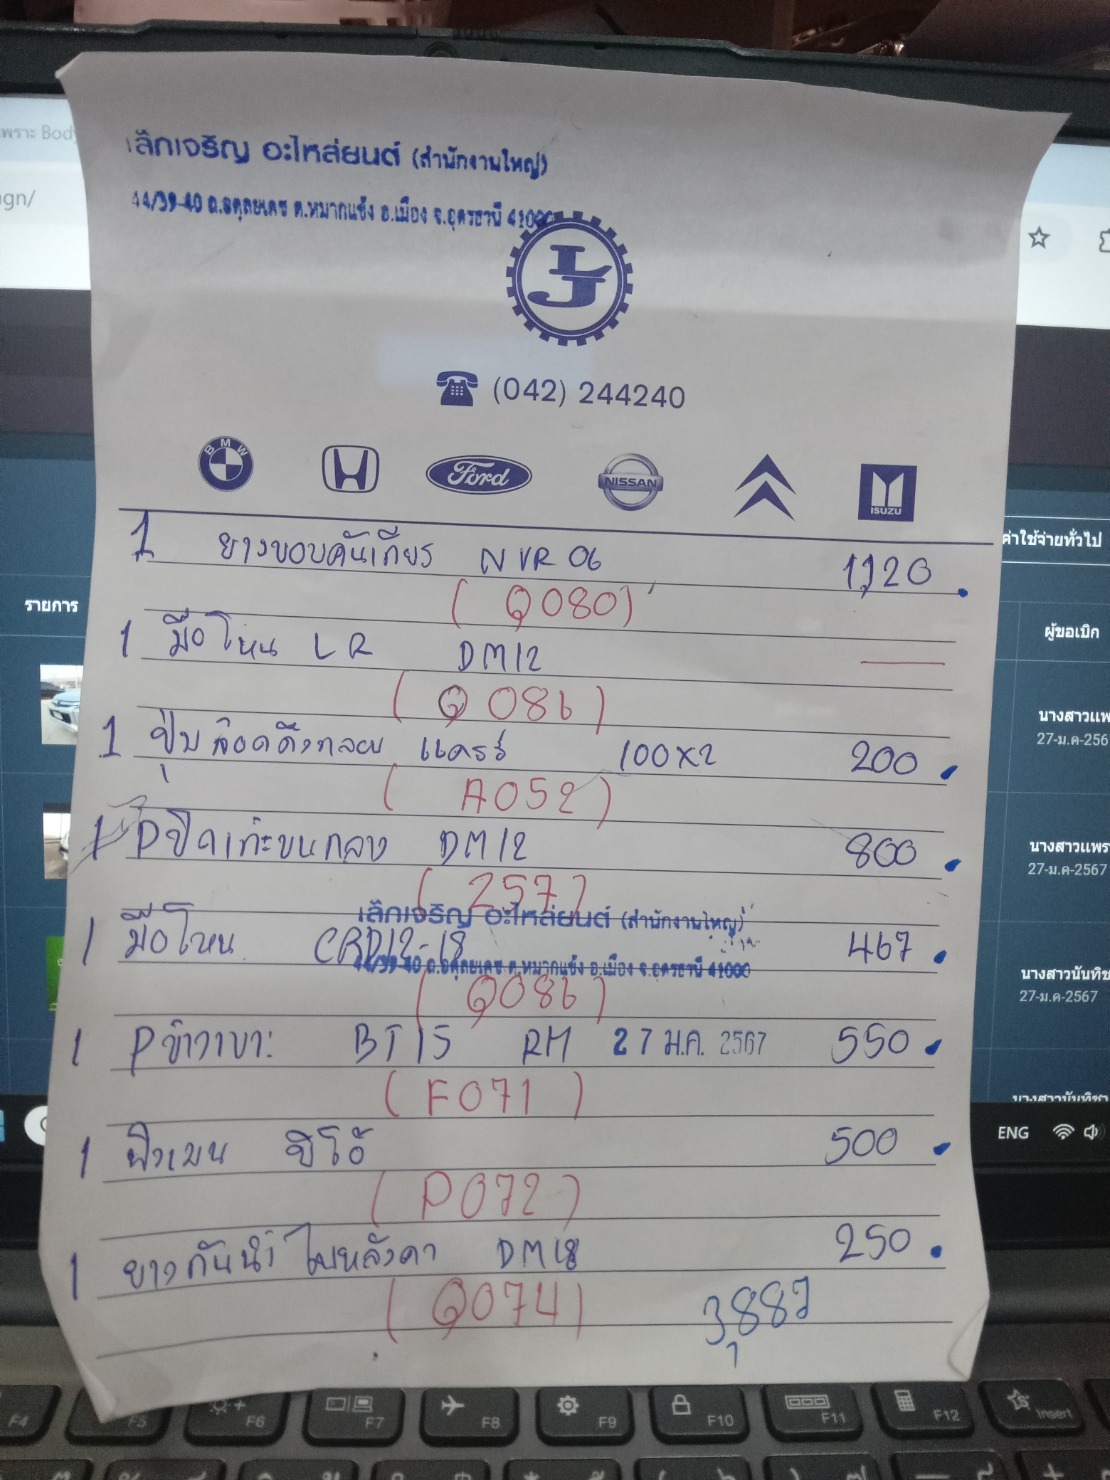 เล็กเจริญ อะไหล่ยนต์ (สำนักงานใหญ่)
44/39-40 ถ.อดุลยเดช ต.หมากแข้ง อ.เมือง จ.อุดรธานี 41000
LJ
(042) 244240
BMW H Ford NISSAN ISUZU
1 ยางขอบคันเกียร์ NVR 06 1,120
(Q080)
1 มือโหน LR DM12
(Q086)
1 ปุ่มล็อค แครร์ 100x2 200
(A052)
1 Pปิดเก๊ะบนกลาง DM12 800
(257)
เล็กเจริญ อะไหล่ยนต์ (สำนักงานใหญ่)
1 มือโหน CRD12-18 467
44/39-40 ถ.อดุลยเดช ต.หมากแข้ง อ.เมือง จ.อุดรธานี 41000
(Q086)
1 Pข้างเบาะ BT15 RM 27 ม.ค. 2567 550
(F071)
1 วีโอ้ 500
(P072)
1 ยางกันน้ำ ไฟหลังคา DM18 250
(Q074)
3,887
เพราะ Body
gn/
รายการ
ค่าใช้จ่ายทั่วไป
ผู้ขอเบิก
นางสาวแพร
27-ม.ค-256
นางสาวแพร
27-ม.ค-2567
นางสาวนันทิช
27-ม.ค-2567
นางสาวนันทิชา
ENG
F4 F5 F6 F7 F8 F9 F10 F11 F12 Insert